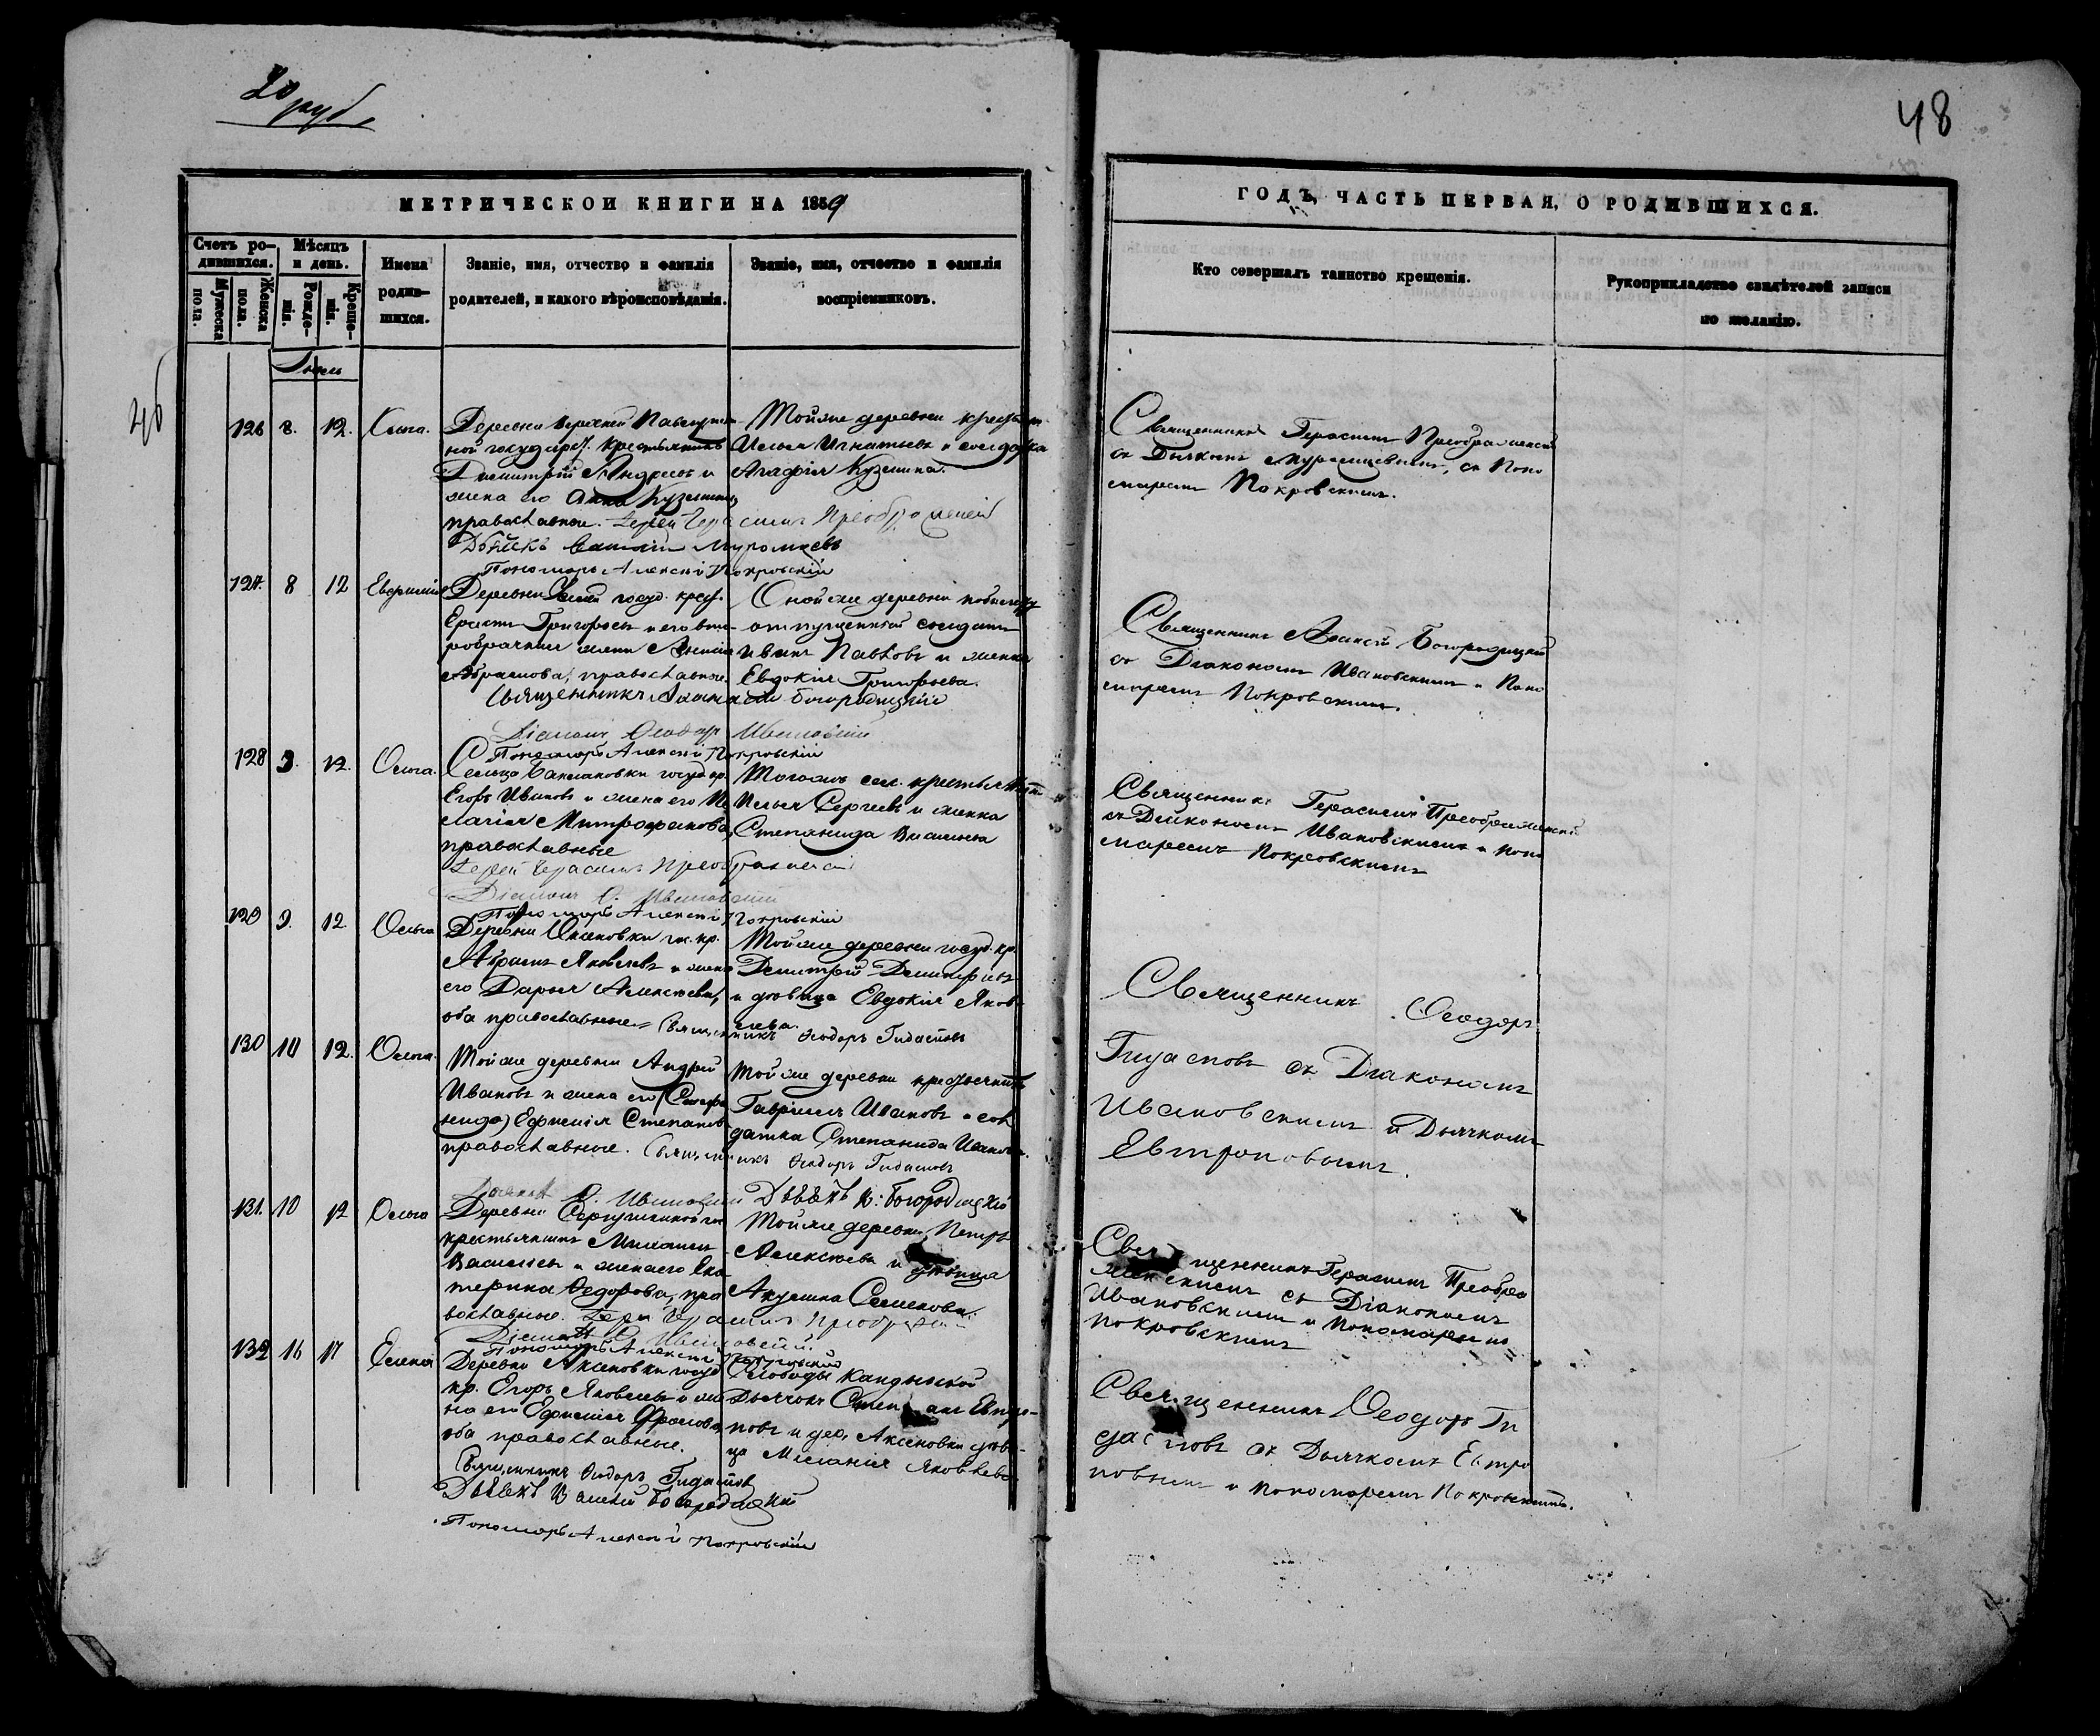 20 руб.
48
МЕТРИЧЕСКОЙ КНИГИ НА 1859
ГОДЪ, ЧАСТЬ ПЕРВАЯ, О РОДИВШИХСЯ.
Счетъ ро-
дившихся.
Мужеска
пола.
Женска
пола.
Мѣсяцъ
и день.
Рожде-
нія.
Креще-
нія.
Имена
родив-
шихся.
Званіе, имя, отчество и фамилія
родителей, и какого вѣроисповѣданія.
Званіе, имя, отчество и фамилія
воспріемниковъ.
Кто совершалъ таинство крещенія.
Рукоприкладство свидѣтелей записи
по желанію.
126 8. 12. Ольга.
ной государ. крестьянинъ
Димитрій Андреевъ и
жена его Анна Кузьмина
православные. Іерей Герасимъ Преображенскій
Василій Муромцевъ
Пономарь Алексій Покровскій
Тойже деревни
Илья Игнатьевъ и солдатка
Агафія Кузьмина.
Священникъ Герасимъ Преображенскій
съ Дьячкомъ Муромцевымъ, съ Поно
маремъ Покровскимъ.
127. 8 12 Евфимія
Деревни госуд. крест.
Григорьевъ и его вто-
робрачная жена
Абрамова, православные.
Священникъ Богородицкій
Діаконъ Ѳеодоръ Ивановскій
Пономарь Алексій Покровскій
Оной же деревни
отпущенный солдатъ
Иванъ Павловъ и женка
Евдокія Григорьева.
Священникъ Богородицкій
съ Діакономъ Ивановскимъ и Поно
маремъ Покровскимъ.
128 9. 12. Ольга.
Сельца
Егоръ Ивановъ и жена его Пе
лагія Митрофанова,
православные
Іерей Герасимъ Преображенскій
Діаконъ Ѳ. Ивановскій
Пономарь Алексій Покровскій
Тогожъ сел.
Илья Сергеевъ и женка
Степанида Васильева
Священникъ Герасимъ Преображенскій
съ Діакономъ Ивановскимъ и Поно
маремъ Покровскимъ
129 9. 12. Ольга
Деревни Аксеновки гос. кр.
Абрамъ Яковлевъ и жена
его Дарья Алексѣева,
оба православные. Священникъ Ѳеодоръ Гидасповъ
Тойже деревни госуд. кр.
Димитрій Димитріевъ
и дѣвица Евдокія Яков-
лева.
Священникъ Ѳеодоръ
Гидасповъ съ Діакономъ
Ивановскимъ и Дьячкомъ
Евтроповымъ.
130 10 12. Ольга.
Тойже деревни Андрей
Ивановъ и жена его
Ефимія Степанов
православные. Священникъ Ѳеодоръ Гидасповъ
Тойже деревни крестьянинъ
Гавріилъ Ивановъ и сол
датка Степанида Иванова.
131. 10 12 Ольга
Деревни
крестьянинъ Михаилъ
Васильевъ и жена его Ека
терина Ѳедорова, пра
вославные. Іерей Герасимъ
Тойже деревни Петръ
Алексѣевъ и дѣвица
Акулина Семенова.
Священникъ Герасимъ Преобра
женскимъ съ Діакономъ
Ивановскимъ и Пономаремъ
Покровскимъ
132 16 17 Елена
Деревни Аксеновки госуд
кр. Егоръ Яковлевъ и же
на его Ефимія Фролова,
оба православные.
Священникъ Ѳеодоръ Гидасповъ
Василій Богородицкій
Пономарь Алексій Покровскій
Слободы
Дьячокъ Степанъ Евтро-
повъ и дер. Аксеновки дѣви-
ца Меланія Яковлева
Священникъ Ѳеодоръ Ги
дасповъ съ Дьячкомъ Евтро
повымъ и Пономаремъ Покровскимъ.